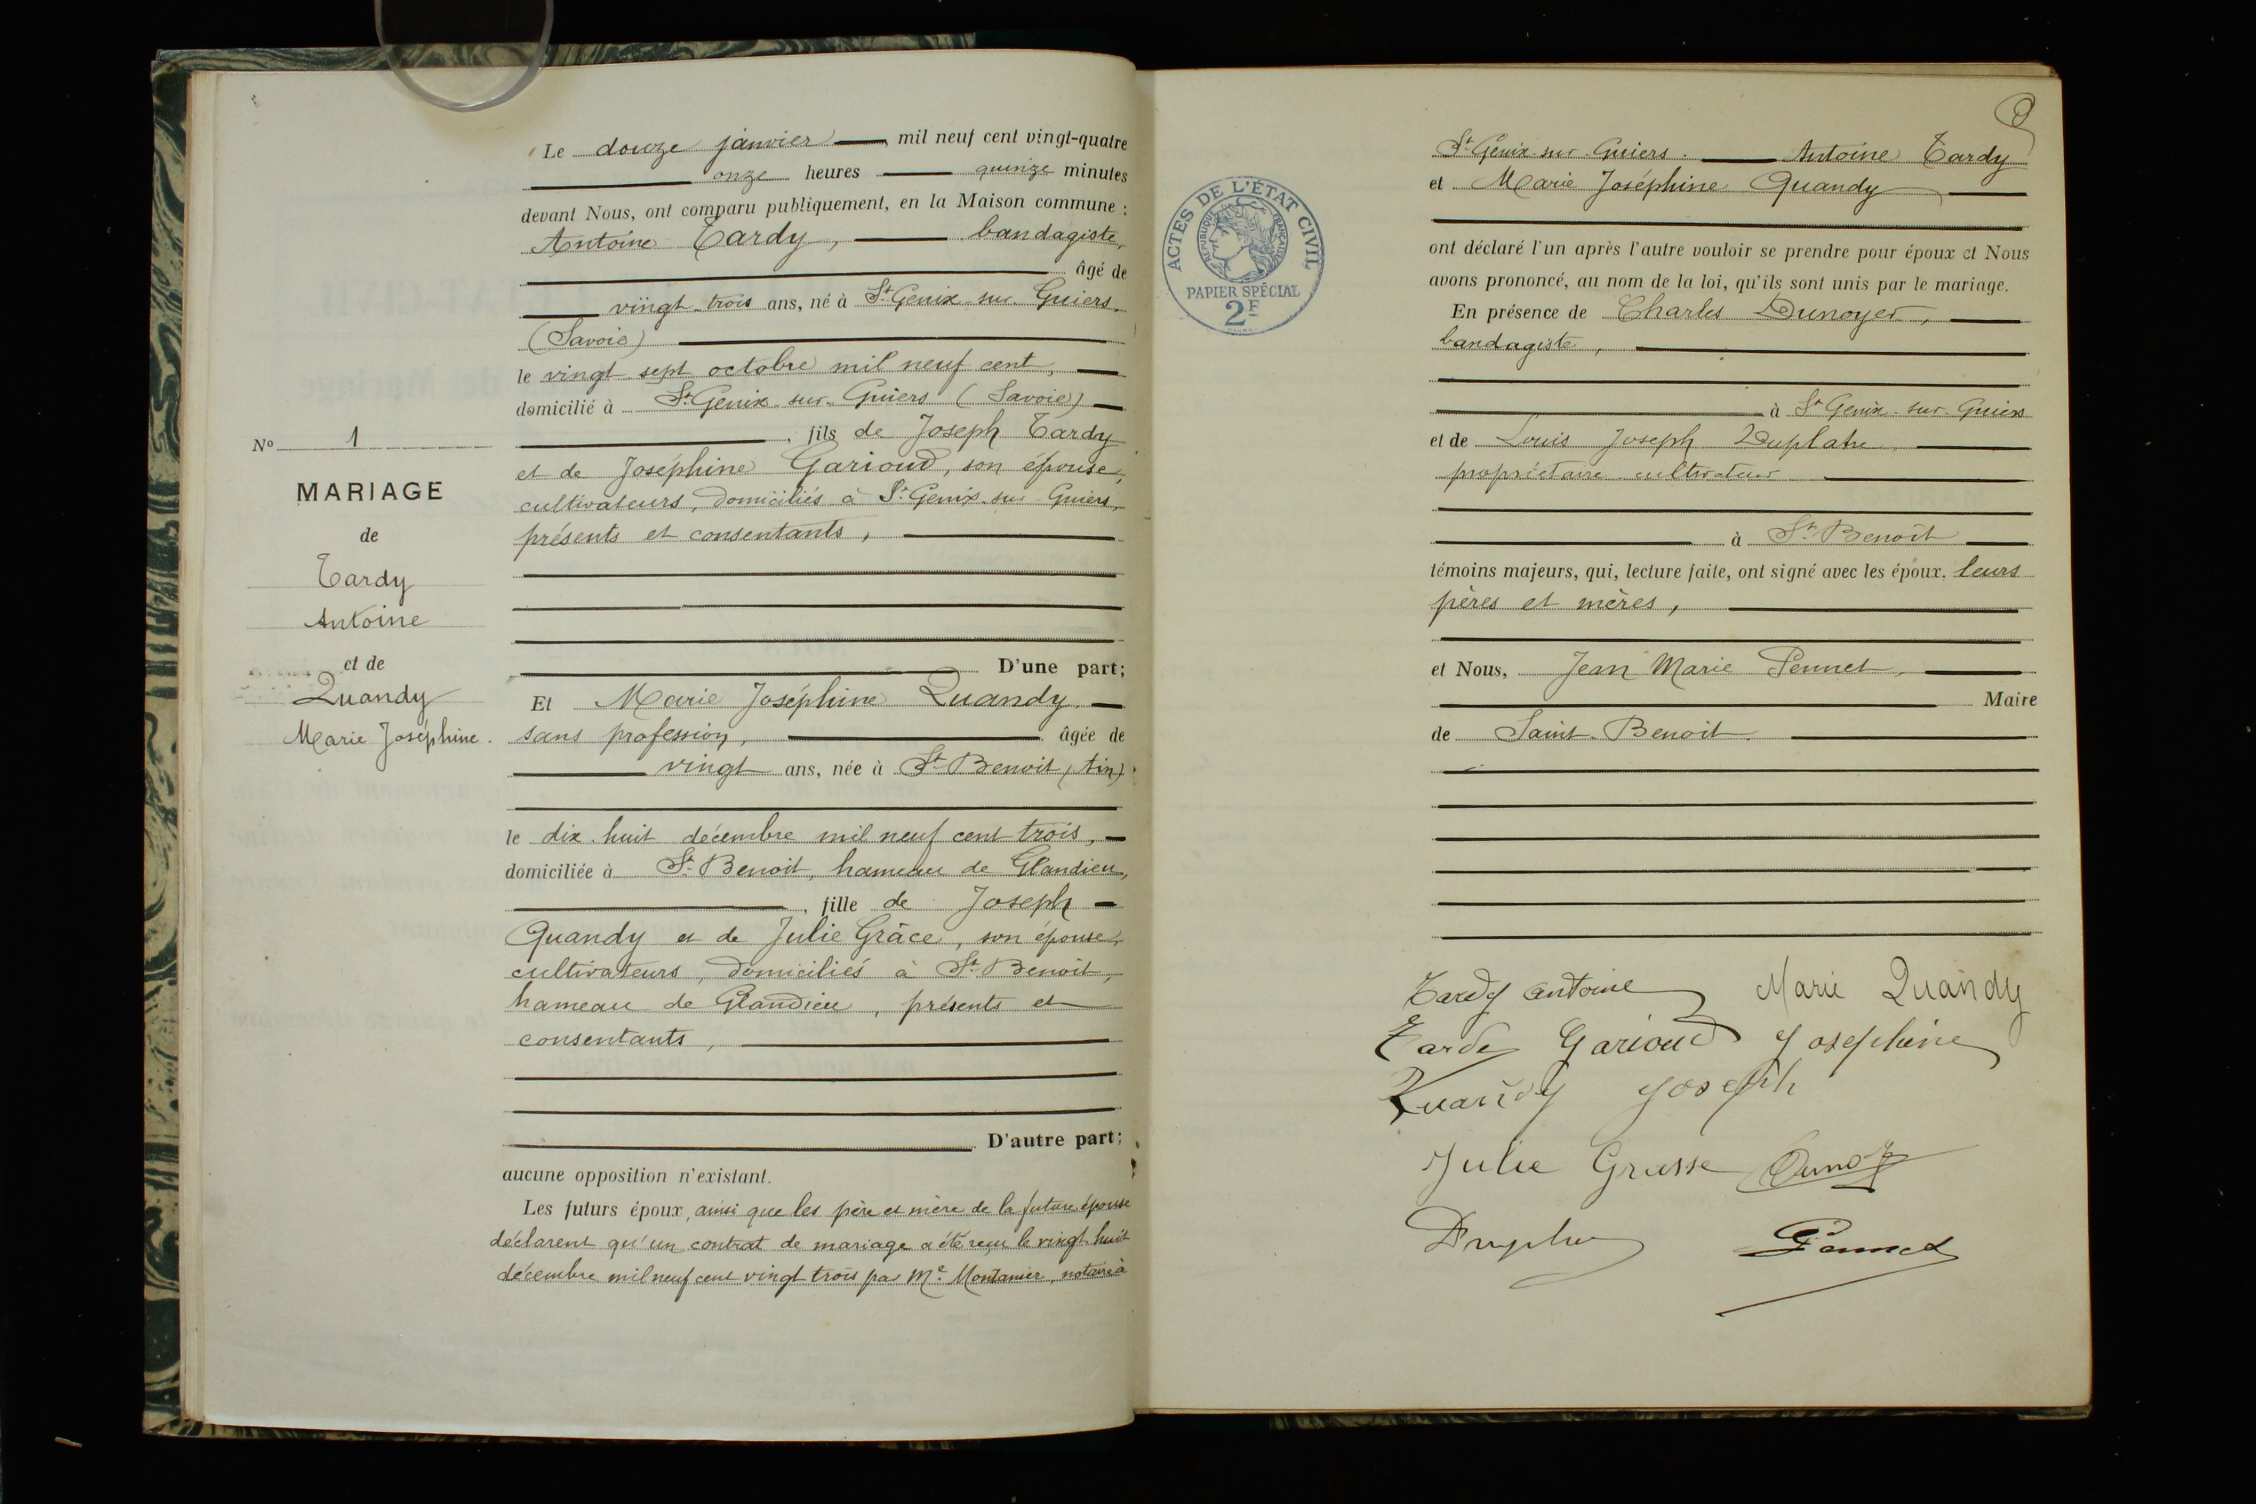 Le douze janvier mil neuf cent vingt-quatre
onze heures quinze minutes
devant Nous, ont comparu publiquement, en la Maison commune :
Antoine Tardy, bandagiste,
âgé de
vingt-trois ans, né à St Genix sur Guiers
(Savoie)
le vingt sept octobre mil neuf cent,
domicilié à St Genix-sur-Guiers (Savoie)
, fils de Joseph Tardy
et de Joséphine Garioud, son épouse,
cultivateurs, domiciliés à St Genix-sur-Guiers,
présents et consentants,
D'une part;
Et Marie Joséphine Quandy.
sans profession, âgée de
vingt ans, née à St Benoit (Ain)
le dix-huit décembre mil neuf cent trois,
domiciliée à St Benoit, hameau de Glandieu,
, fille de Joseph
Quandy et de Julie Grâce, son épouse,
cultivateurs, domiciliés à St Benoit,
hameau de Glandieu, présents et
consentants,
D'autre part;
aucune opposition n'existant.
Les futurs époux, ainsi que les père et mère de la future épouse
déclarent qu'un contrat de mariage a été reçu le vingt-huit
décembre mil neuf cent vingt trois par Me Montanier, notaire à
No 1
MARIAGE
de
Tardy
Antoine
et de
Quandy
Marie Joséphine.
ACTES DE L'ÉTAT CIVIL
RÉPUBLIQUE FRANÇAISE
PAPIER SPÉCIAL
2F
St Genix-sur-Guiers. Antoine Tardy
et Marie Joséphine Quandy
ont déclaré l'un après l'autre vouloir se prendre pour époux et Nous
avons prononcé, au nom de la loi, qu'ils sont unis par le mariage.
En présence de Charles Dunoyer,
bandagiste,
à St Genix-sur-Guiers
et de Louis Joseph
propriétaire-cultivateur
à St Benoît
témoins majeurs, qui, lecture faite, ont signé avec les époux, leurs
pères et mères,
et Nous, Jean Marie Pennet,
Maire
de Saint-Benoit.
Tardy Antoine Marie Quandy
Tardy Garioud Josephine
Quandy Joseph
Julie Grasse
Pennet